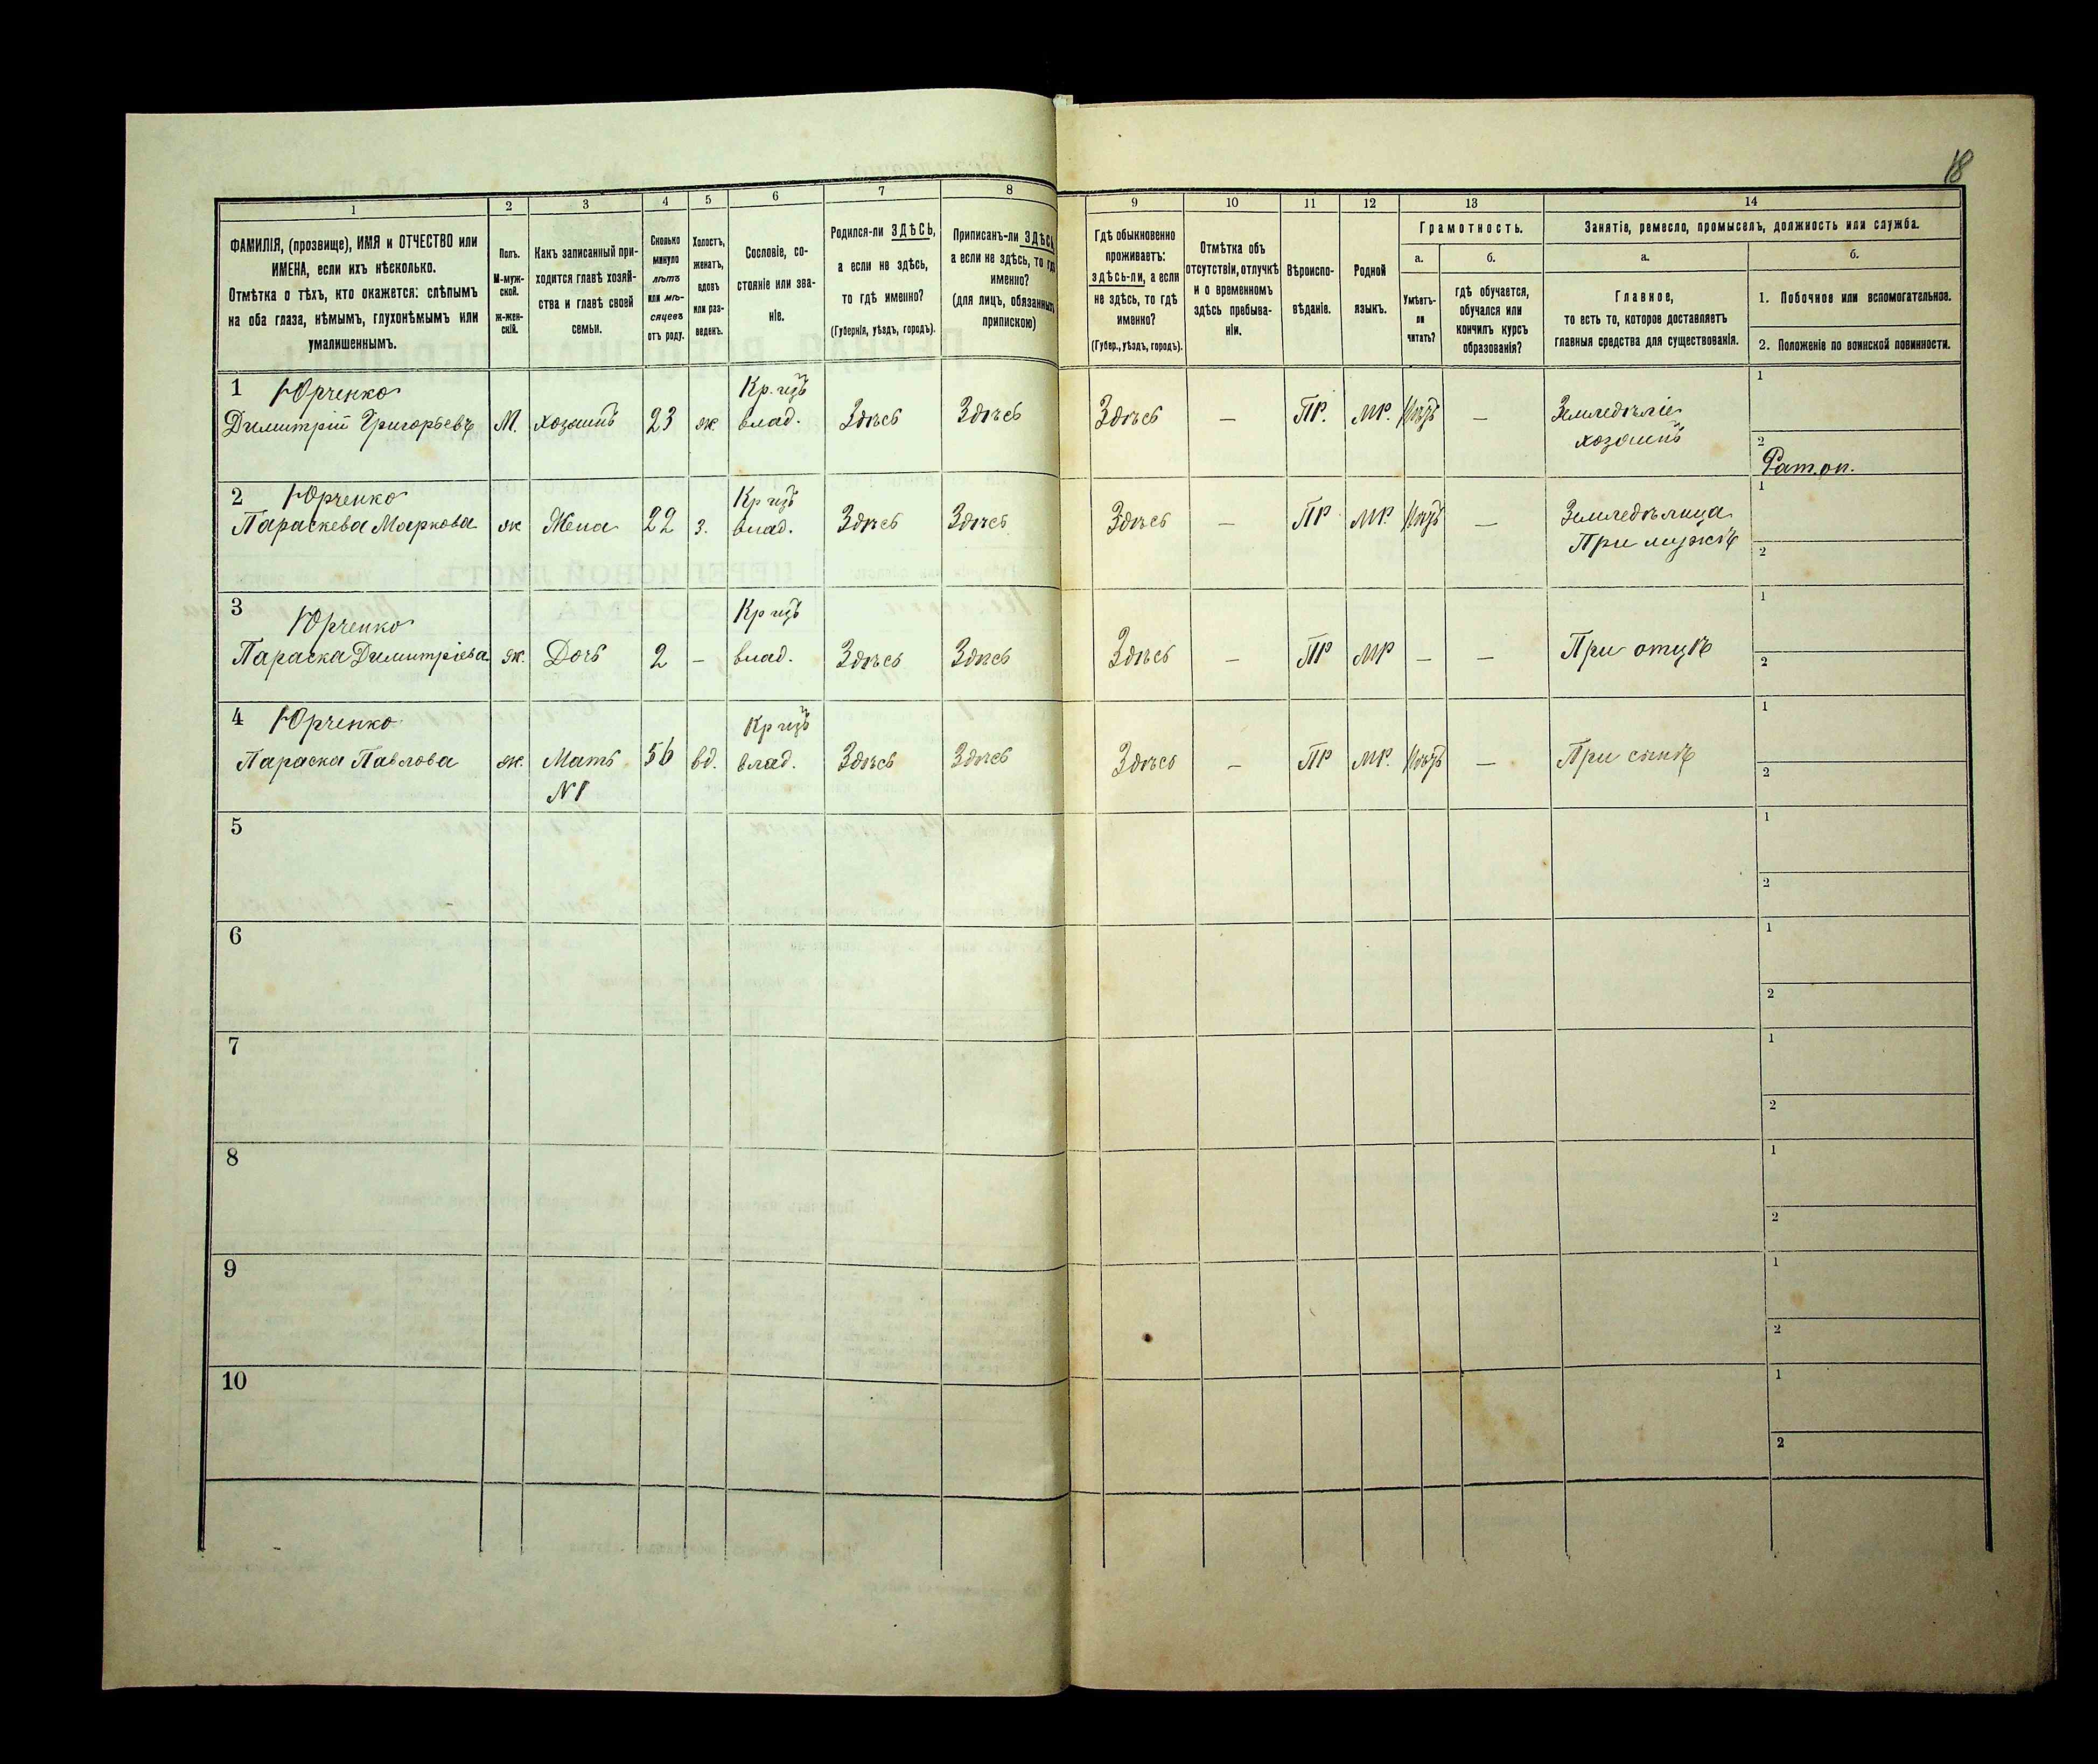 18
1
2
3
4
5
6
7
8
9
10
11
12
13
14
ФАМИЛІЯ, (прозвище), ИМЯ и ОТЧЕСТВО или
ИМЕНА, если ихъ нѣсколько.
Отмѣтка о тѣхъ, кто окажется: слѣпымъ
на оба глаза, нѣмымъ, глухонѣмымъ или
умалишеннымъ.
Полъ.
М-муж-
ской.
ж-жен-
скій.
Какъ записанный при-
ходится главѣ хозяй-
ства и главѣ своей
семьи.
Сколько
минуло
лѣтъ
или мѣ-
сяцевъ
отъ роду.
Холостъ,
женатъ,
вдовъ
или раз-
веденъ.
Сословіе, со-
стояніе или зва-
ніе.
Родился-ли ЗДѢСЬ,
а если не здѣсь,
то гдѣ именно?
(Губернія, уѣздъ, городъ).
Приписанъ-ли ЗДѢСЬ
а если не здѣсь, то гдѣ
именно?
(для лицъ, обязанныхъ
припискою)
Гдѣ обыкновенно
проживаетъ:
здѣсь-ли, а если
не здѣсь, то гдѣ
именно?
(Губер., уѣздъ, городъ).
Отмѣтка объ
отсутствіи, отлучкѣ
и о временномъ
здѣсь пребыва-
ніи.
Вѣроиспо-
вѣданіе.
Родной
языкъ.
Грамотность.
а.
Умѣетъ-
ли
читать?
б.
гдѣ обучается,
обучался или
кончилъ курсъ
образованія?
Занятіе, ремесло, промыселъ, должность или служба.
а.
Главное,
то есть то, которое доставляетъ
главныя средства для существованія.
б.
1. Побочное или вспомогательное.
2. Положеніе по воинской повинности.
1 Юрченко
Димитрій Григорьевъ М. хозяинъ 23 ж. Кр. изъ
влад. Здѣсь Здѣсь Здѣсь — ПР. МР. —
Земледѣліе
хозяинъ
1
2
Рат. оп.
2 Юрченко
Параскева Маркова ж Жена 22 з. Кр изъ
влад. Здѣсь Здѣсь Здѣсь — ПР МР. —
Земледѣлица
При мужѣ
1
2
3 Юрченко
Параска Димитріева ж. Дочь 2 — Кр изъ
влад. Здѣсь Здѣсь Здѣсь — ПР МР — —
При отцѣ
1
2
4 Юрченко
Параска Павлова ж. Мать 56 вд. Кр изъ
влад. Здѣсь Здѣсь Здѣсь — ПР МР. —
N 1
При сынѣ
1
2
5
1
2
6
1
2
7
1
2
8
1
2
9
1
2
10
1
2